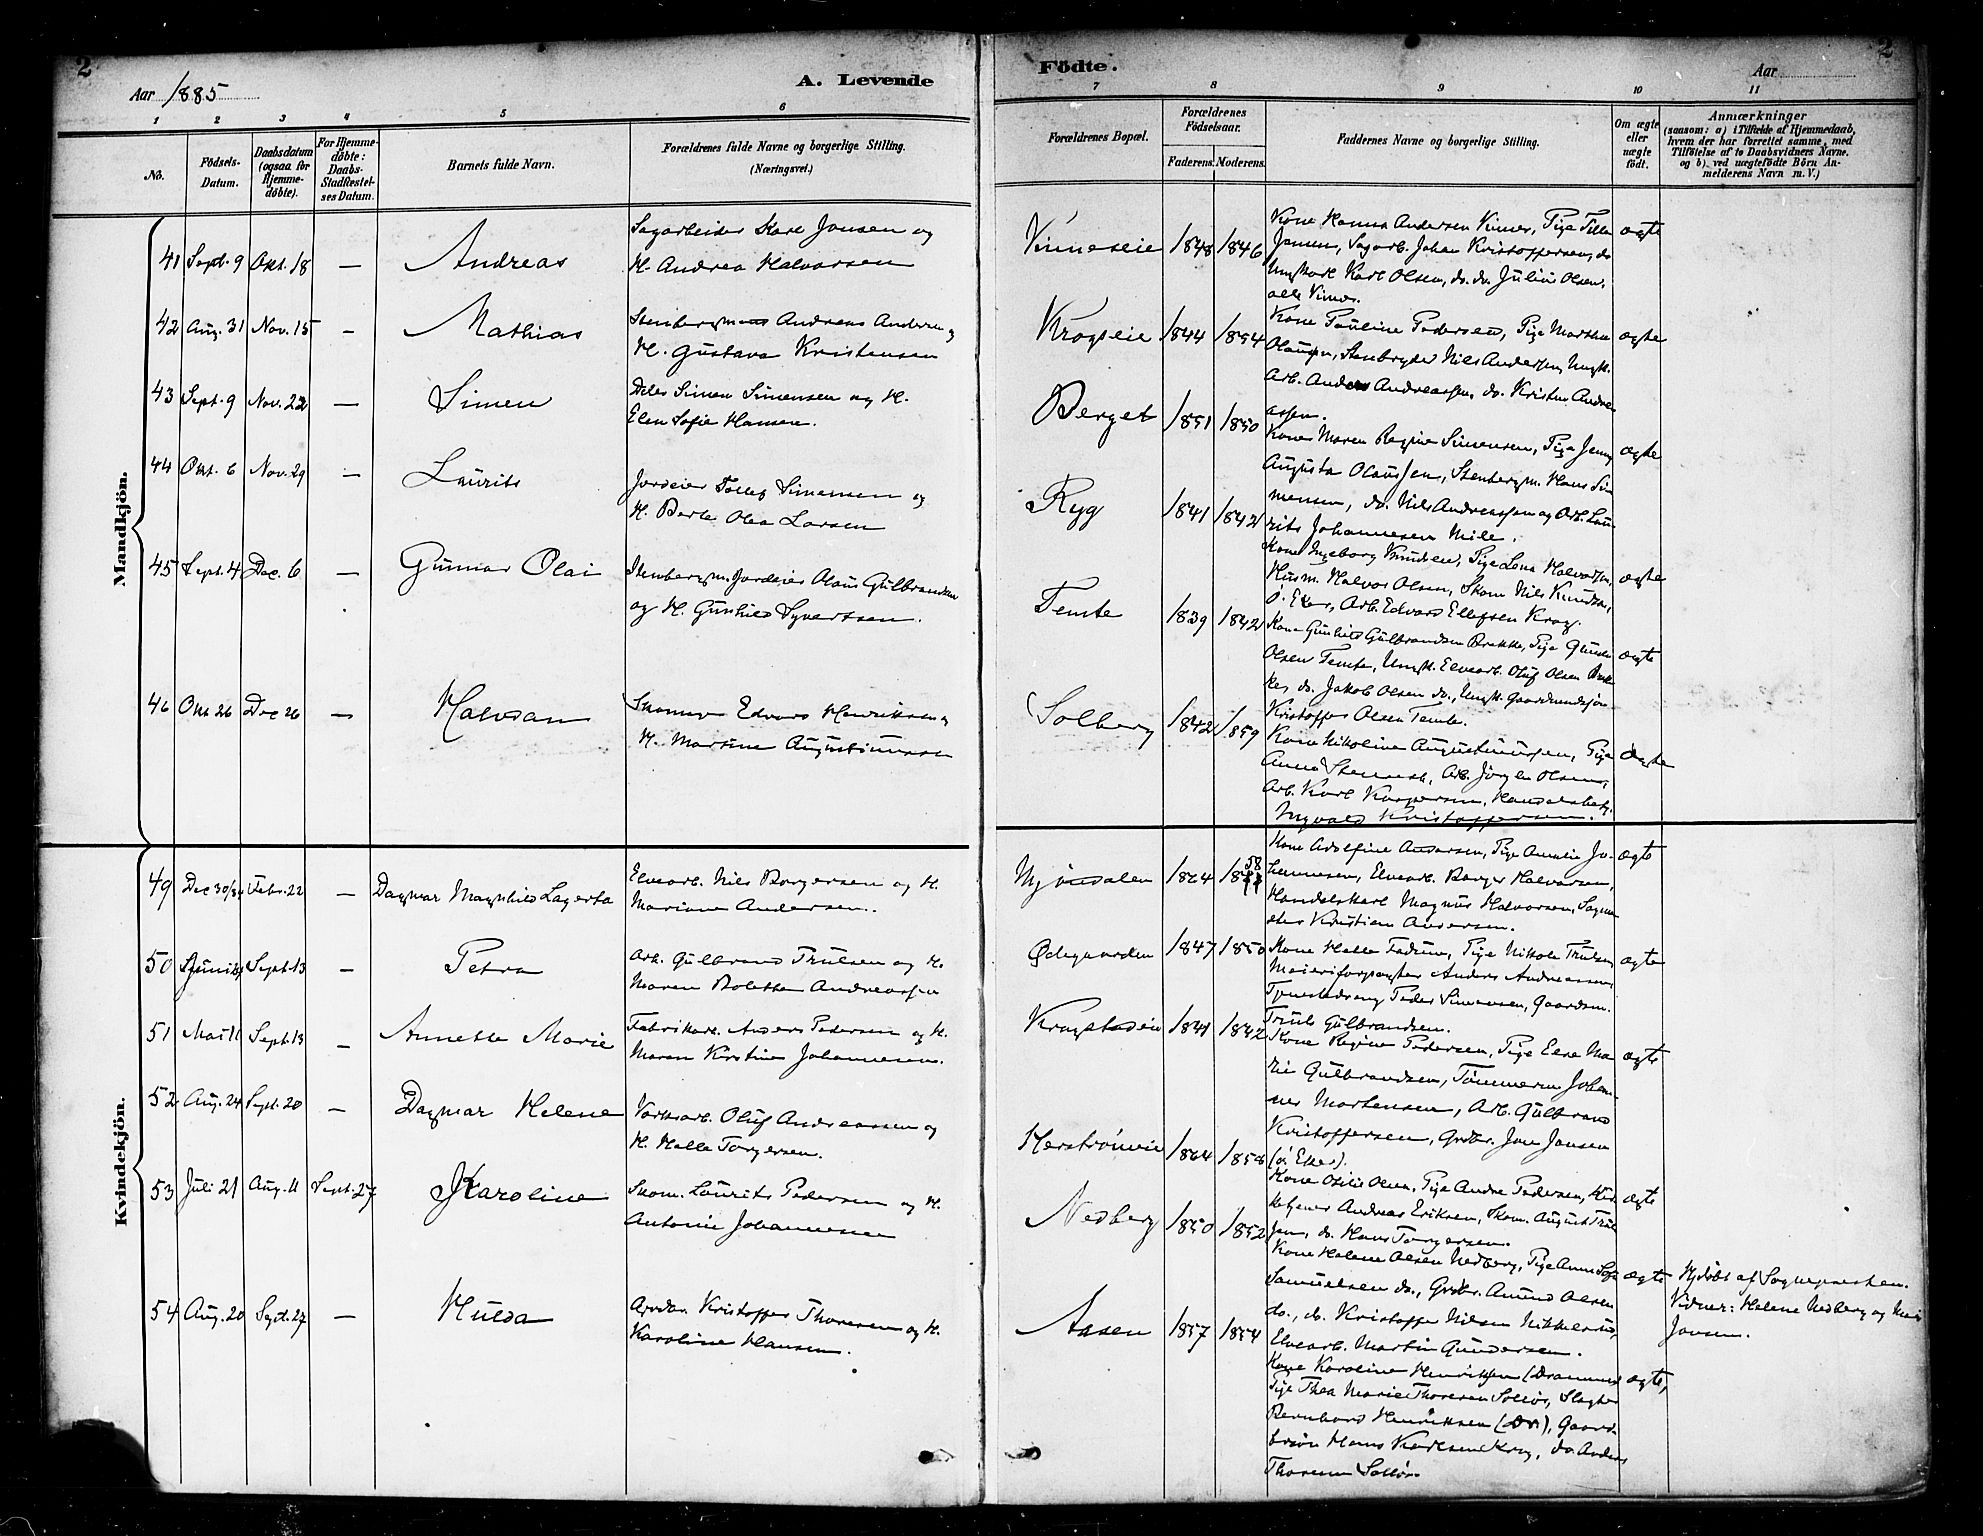 2
Aar 1885
A. Levende
Födte.
Aar
2
1 2 3 4 5 6 7 8 9 10 11
No.
Födsels-Datum.
Daabsdatum (ogsaa for Hjemmedöbte).
For Hjemmedöbte: Daabs-Stadfæstelses Datum.
Barnets fulde Navn.
Forældrenes fulde Navne og borgerlige Stilling. (Næringsvei.)
Forældrenes Bopæl.
Forældrenes Födselsaar.
Faderens. Moderens.
Faddernes Navne og borgerlige Stilling.
Om ægte eller uægte födt.
Anmærkninger
(saasom: a) i Tilfælde af Hjemmedaab, hvem der har forrettet samme, med Tilföielse af to Daabsvidners Navne. og b) ved uægtefödte Börn Anmelderens Navn m. V.)
Mandkjön.
41 Sept. 9 Okt. 18 — Andreas
Sagarbeider Karl Jansen og
H. Andrea Halvorsen
Vinneseie 1848 1846
Jansen, Sagarb. Johan Kristoffersen, do
Ungkarl Karl Olsen, do. do. Julius Olsen,
alle Vinnes.
ægte
42 Aug. 31 Nov. 15 — Mathias
Andreas Andersen og
H. Gustava Kristensen
Krogseie 1844 1854
Kone Pauline Pedersen, Pige Marthea
Arb. Anders Andreassen, do. Kristian Andre-
assen.
ægte
43 Sept. 9 Nov. 22 — Simen
Simen Simensen og H.
Elen Sofie Hansen.
Berget 1851 1850
Kone Maren Regine Simensen, Pige Jenny
Augusta Olausen, Stenbergm. Hans Si-
mensen, do. Nils Andreassen og Arb. Lau-
rits Johannesen Mile.
ægte
44 Okt. 6 Nov. 29 — Laurits
Jordeier Tollef Simensen og
H. Berte Olea Larsen
Ryg 1841 1842
Kone Ingeborg Knudsen, Pige Lena Halvorsen,
Husm. Halvor Olsen, Skom. Nils Knudsen,
Ö. Eker, Arb. Edvard Ellefsen Krog.
ægte
45 Sept. 4 Dec. 6 — Gunnar Olai
Stenbergm. Jordeier Olaus Gulbrandsen
og H. Gunhild Syvertsen.
Temte 1839 1842
Kone Gunhild Gulbrandsen Brekke, Pige
Olsen Temte, Ungk. Elvearb. Oluf Olsen Brek-
ke, do. Jakob Olsen do., Ungk.
Kristoffer Olsen Temte.
ægte
46 Okt 26 Dec 26 — Halvdan
Edvard Henriksen og
H. Martine Augustinussen
Solberg 1842 1859
Kone Nikoline Augustinussen, Pige
Anna Stenseth, Arb. Jörgen Olsen,
Arb. Karl Kaspersen,
Ingvald Kristoffersen.
ægte
Kvindekjön.
49 Dec 30/84 Febr. 22 — Dagmar Magnhild Lagerta
Elvearb. Nils Borgersen og H.
Mariane Andersen.
Mjöndalen 1864 1858
Kone Adolfine Andersen, Pige Amalie Jo-
hannesen, Elvearb. Borger Halvorsen,
Handelskarl Magnus Halvorsen,
Kristian Andersen.
ægte
50 Sept. 13 — Petra
Arb. Gulbrand Trulsen og H.
Maren Bolette Andreassen
Ödegaarden 1847 1850
Kone Helle Fadum, Pige Nikole Trulsen,
Meieriforpagter Anders Andreassen,
Tjenestedreng Peder Simensen, Gaardm.
Truls Gulbrandsen.
ægte
51 Mai 11 Sept. 13 — Annette Marie
Fabrikarb. Anders Pedersen og H.
Maren Kirstine Johannesen.
Krogstadeie 1841 1842
Kone Regine Pedersen, Pige Else Ma-
rie Gulbrandsen, Tömmerm. Johan-
nes Mortensen, Arb. Gulbrand
Kristoffersen, Grdbr. Jon Jonsen
(ö. Eker).
ægte
52 Aug. 24 Sept. 20 — Dagmar Helene
Værksarb. Oluf Andreassen og
H. Helle Torgersen.
Herströmeie 1864 1858
Kone Otilie Olsen, Pige Andrea Pedersen, Kir-
ketjener Andreas Eriksen, Skom. August Trul-
sen, do. Hans Torgersen.
ægte
53 Juli 21 Aug. 11 Sept. 27 Karoline
Skom. Laurits Pedersen og H.
Antonie Johannesen
Nedberg 1850 1852
Kone Helene Olsen Nedberg, Pige Anne Sofie
Samuelsen do., Grdbr. Amund Olsen
do., do. Kristoffer Nilsen
Elvearb. Martin Gundersen.
ægte
Hjdöbt af Sognepresten.
Vidner: Helene Nedberg og
Jonsen.
54 Aug. 20 Sept. 27 — Hulda
Kristoffer Thoresen og H.
Karoline Hansen.
Aasen 1857 1854
Kone Karoline Henriksen (Drammen)
Pige Thea Marie Thoresen Solför, Slagter
Bernhard Henriksen (Drn), Gaard-
bruger Hans Karlsen Krog, do. Anders
Thoresen
ægte,